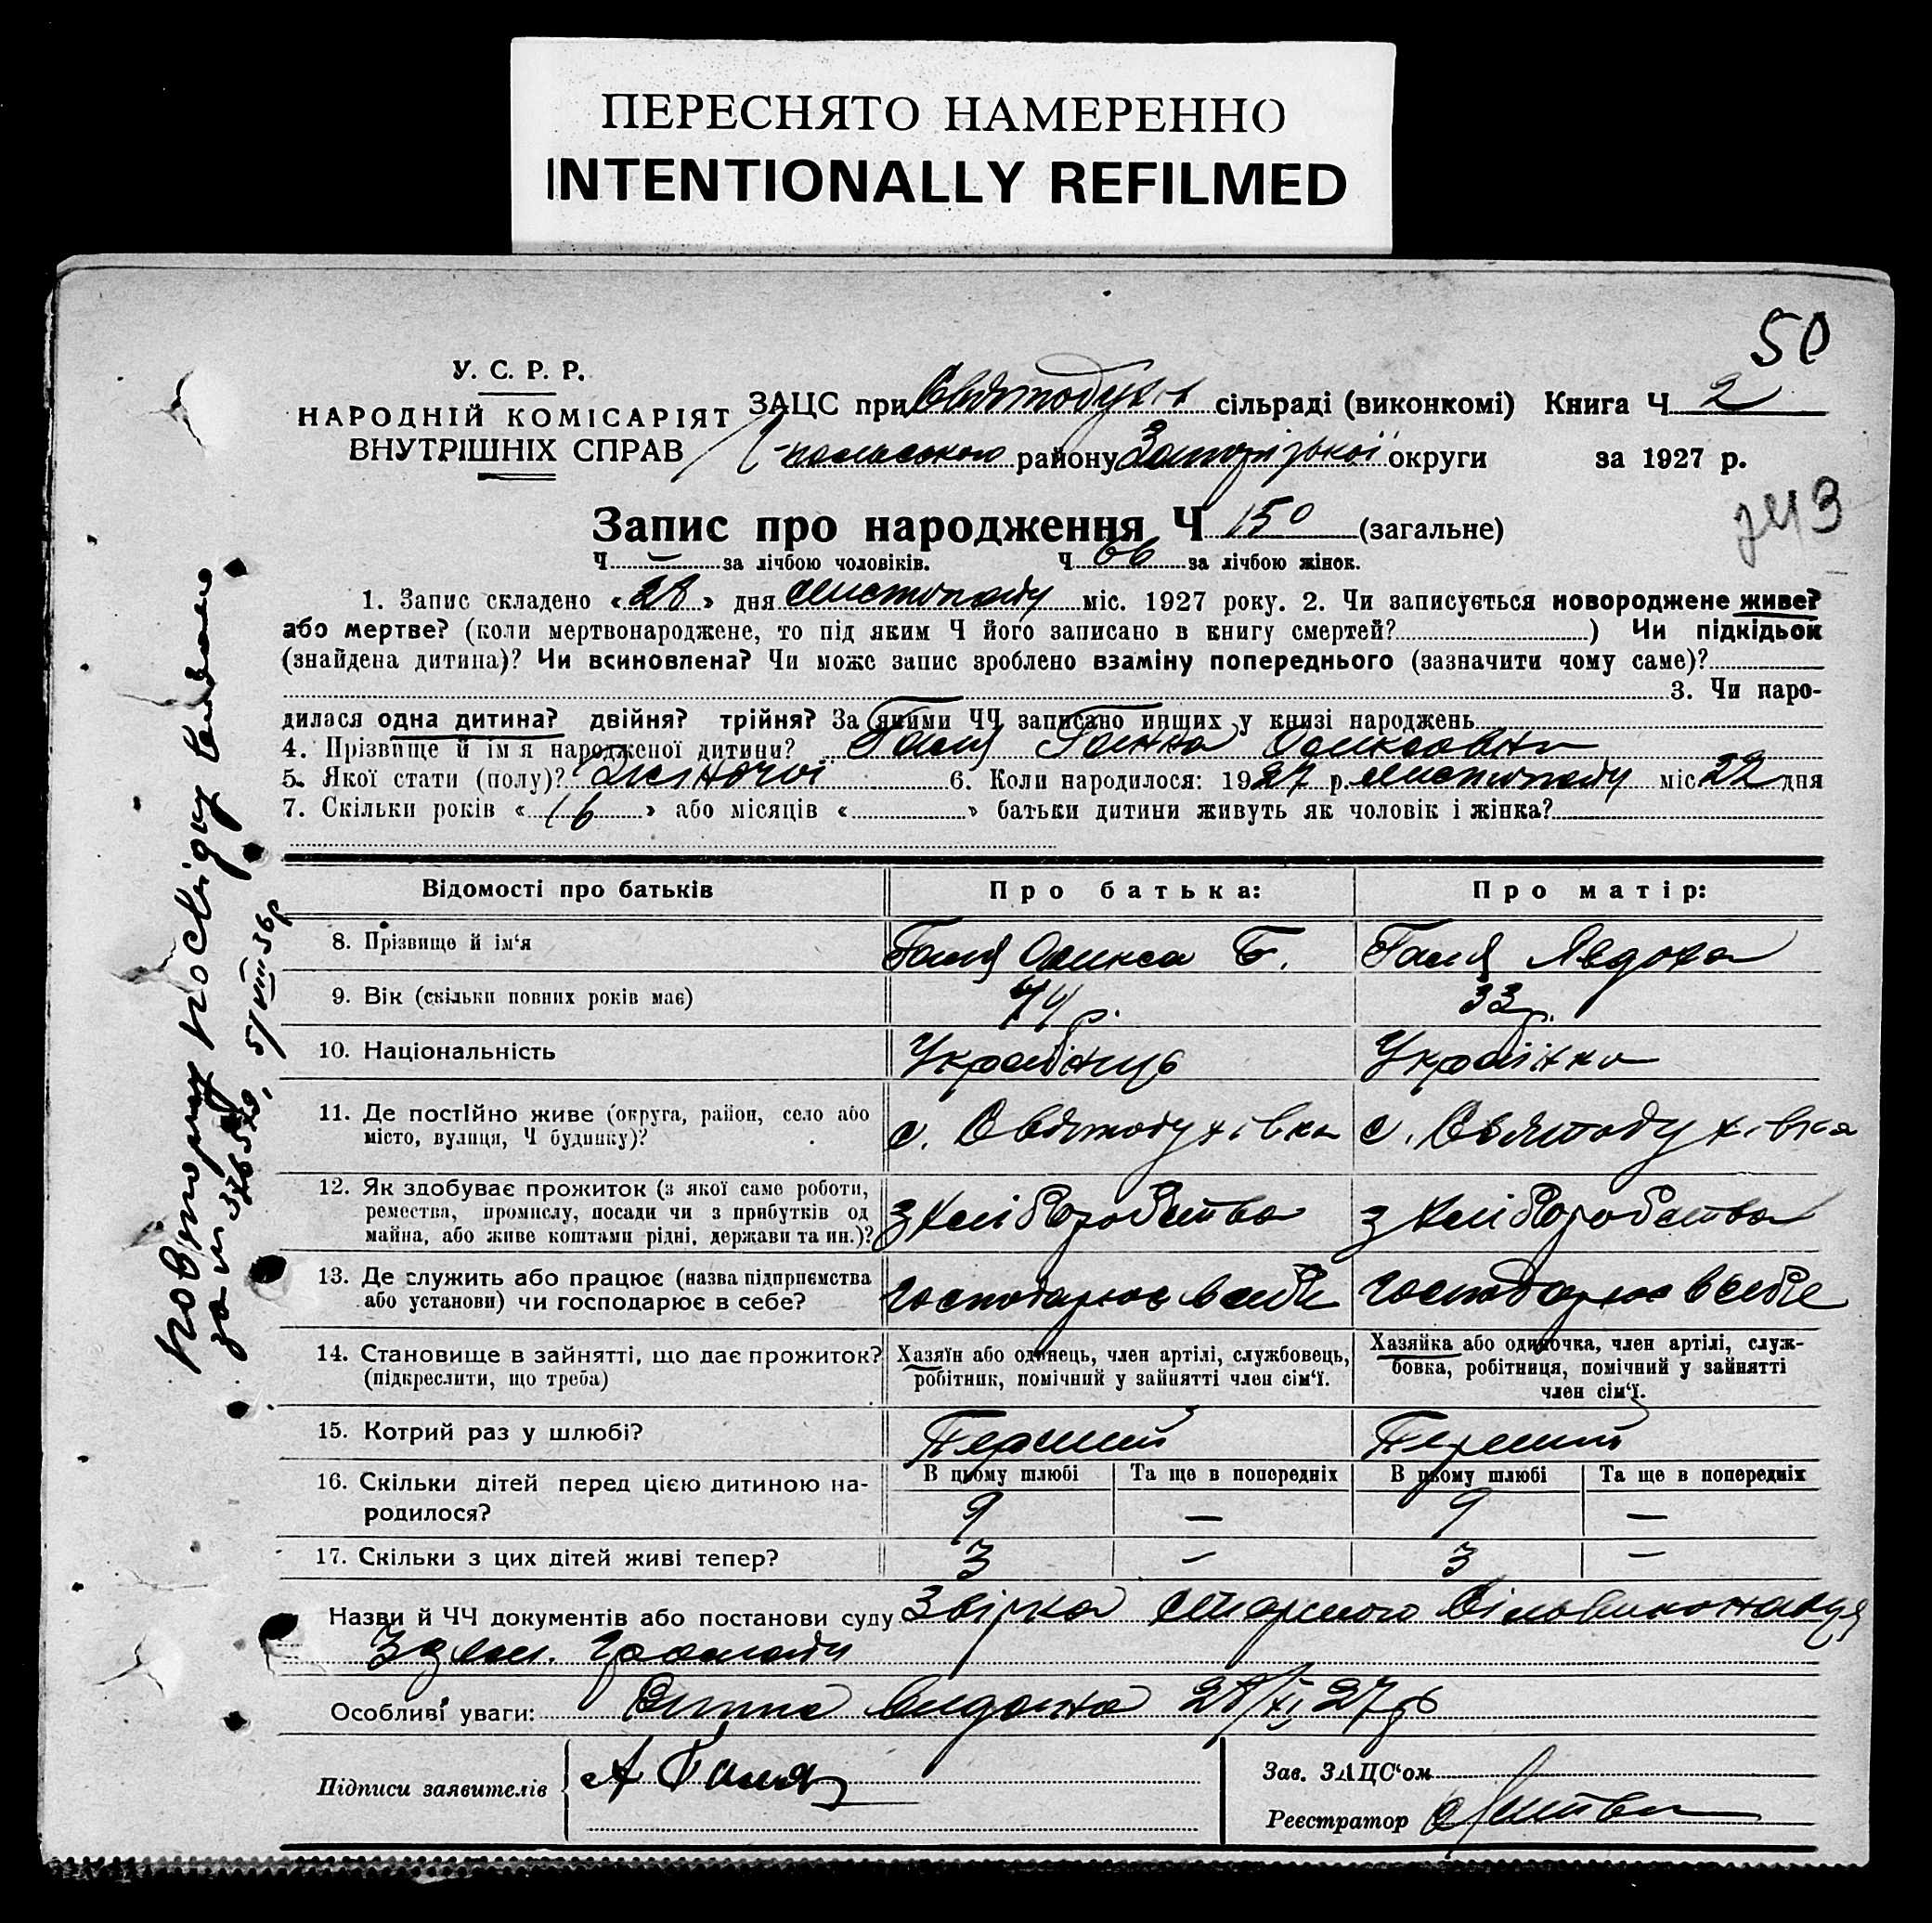 ПЕРЕСНЯТО НАМЕРЕННО
INTENTIONALLY REFILMED
50
У. С. Р. Р.
НАРОДНІЙ КОМІСАРІЯТ
ВНУТРІШНІХ СПРАВ
ЗАЦС при Святодухів сільраді (виконкомі) Книга Ч 2
району Запорізької округи за 1927 р.
743
Запис про народження Ч 150 (загальне)
Ч — за лічбою чоловіків. Ч 66 за лічбою жінок.
1. Запис складено «28» дня листопаду міс. 1927 року. 2. Чи записується новороджене живе?
або мертве? (коли мертвонароджене, то під яким Ч його записано в книгу смертей?) Чи підкідьок
(знайдена дитина)? Чи всиновлена? Чи може запис зроблено взаміну попереднього (зазначити чому саме)?
3. Чи наро-
дилася одна дитина? двійня? трійня? За якими ЧЧ записано инших у книзі народжень
4. Прізвище й ім'я народженої дитини? Галя Ганна Олексовна
5. Якої стати (полу)? Жіночої 6. Коли народилося: 1927 р. листопаду міс. 22 дня
7. Скільки років «16» або місяців « » батьки дитини живуть як чоловік і жінка?
Відомості про батьків Про батька: Про матір:
8. Прізвище й ім'я Галя Олекса Б. Галя Явдоха
9. Вік (скільки повних років має) 44 р. 33 р.
10. Національність Українець Українка
11. Де постійно живе (округа, район, село або
місто, вулиця, Ч будинку)? с. Святодухівка с. Святодухівка
12. Як здобуває прожиток (з якої саме роботи,
ремества, промислу, посади чи з прибутків од
майна, або живе коштами рідні, держави та ин.)? З хліборобства З хліборобства
13. Де служить або працює (назва підприємства
або установи) чи господарює в себе? Господарює в себе Господарює в себе
14. Становище в зайнятті, що дає прожиток?
(підкреслити, що треба)
Хазяїн або одинець, член артілі, службовець,
робітник, помічний у зайнятті член сім'ї.
Хазяйка або одиночка, член артілі, служ-
бовка, робітниця, помічний у зайнятті
член сім'ї.
15. Котрий раз у шлюбі? Перший Перший
В цьому шлюбі Та ще в попередніх В цьому шлюбі Та ще в попередніх
16. Скільки дітей перед цією дитиною на-
родилося? 9 — 9 —
17. Скільки з цих дітей живі тепер? 3 — 3 —
Назви й ЧЧ документів або постанови суду Звірка старшого Сільвиконавця
З зем. громади
Особливі уваги: Випис видана 28/XI 27 р
Підписи заявителів А Галя
Зав. ЗАЦС'ом
Реєстратор
Повторну посвідку видано
за № 376579, 5/VIII 36 р